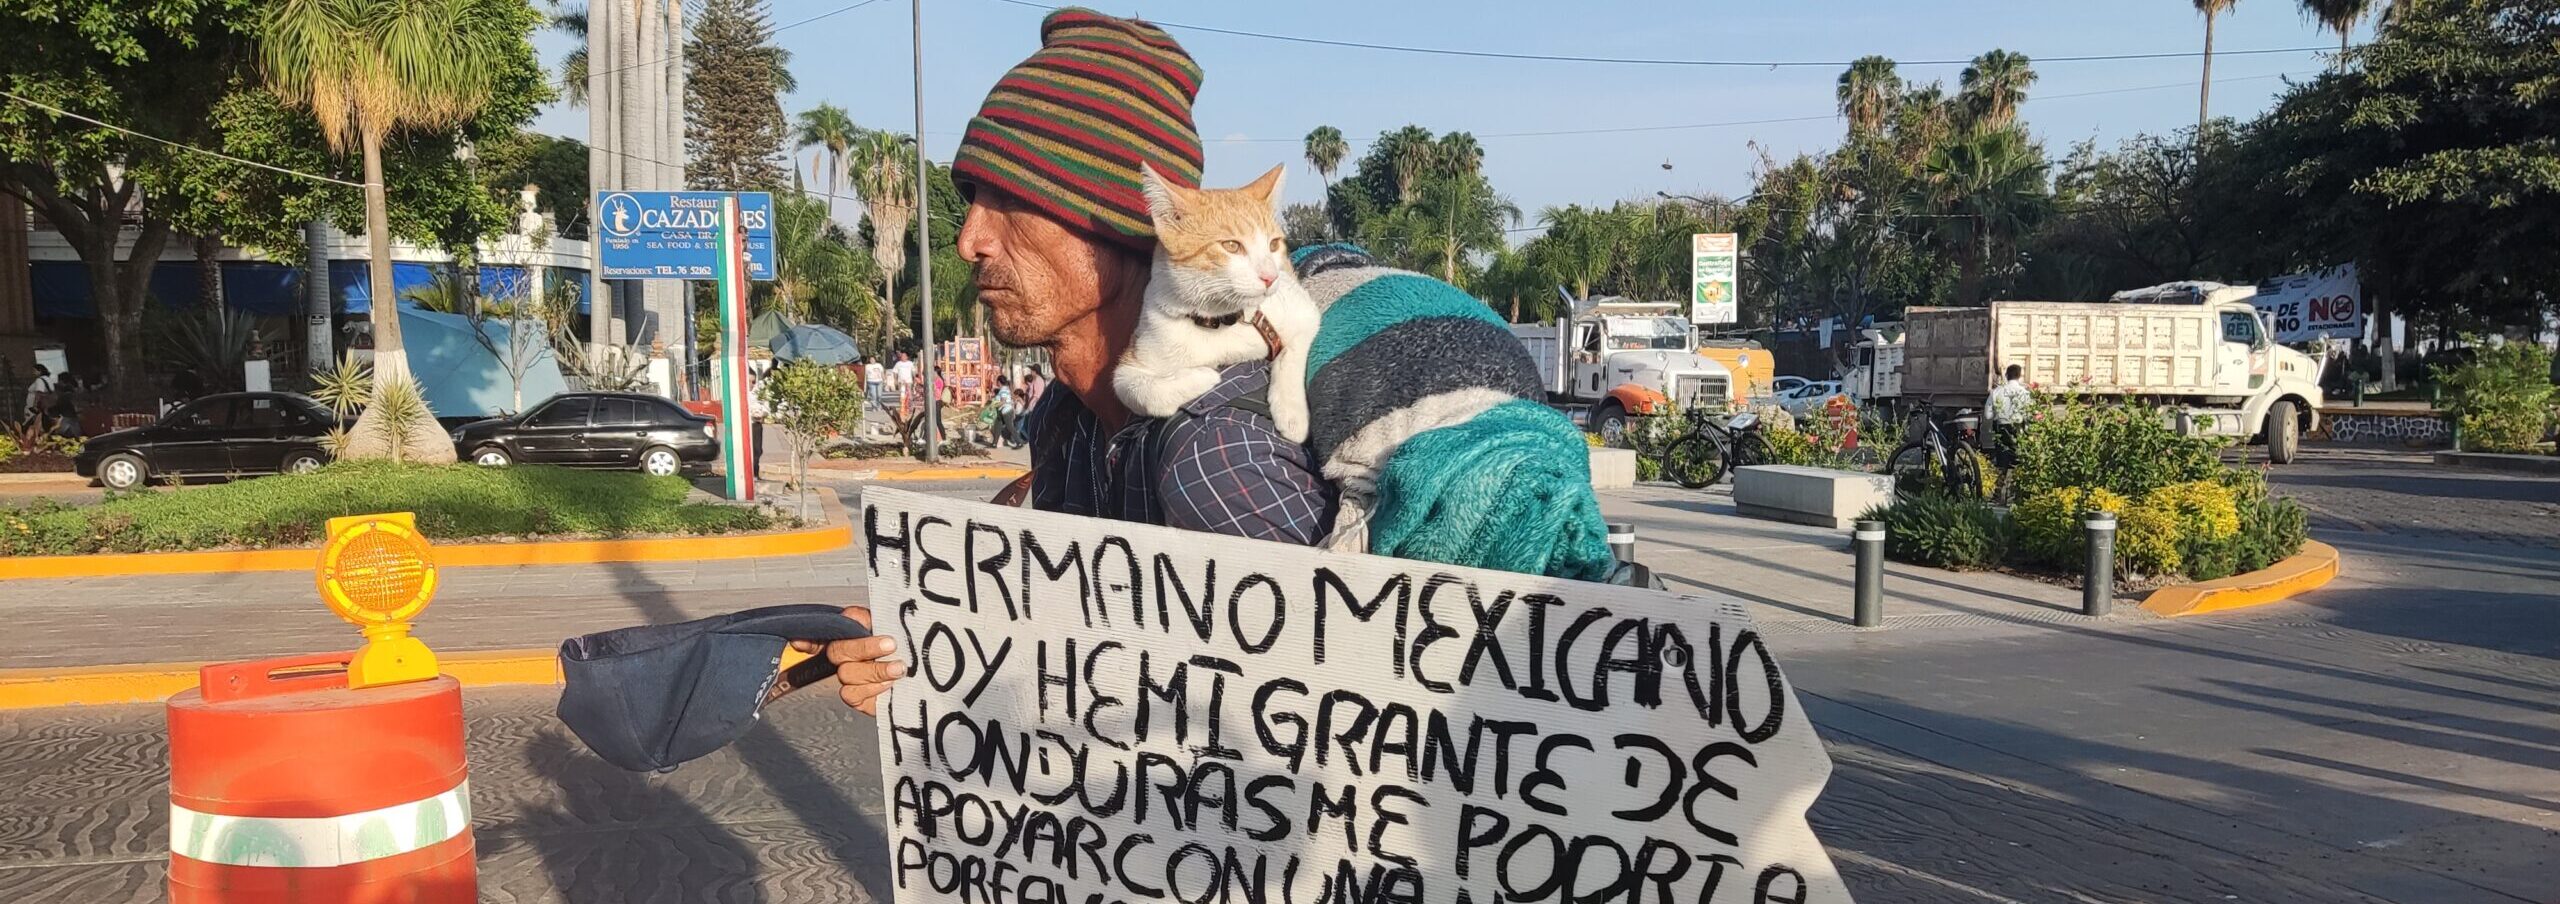 Restaur
CAZAD ES
Fundado en
1956
CASA BRA
SEA FOOD & ST HOUSE
Reservaciones: TEL. 76 52162
DE
NO
NO
ESTACIONARSE
HERMANO MEXICANO
SOY HEMIGRANTE DE
HONDURAS ME PODRIA
APOYAR CON UNA
PORFAV